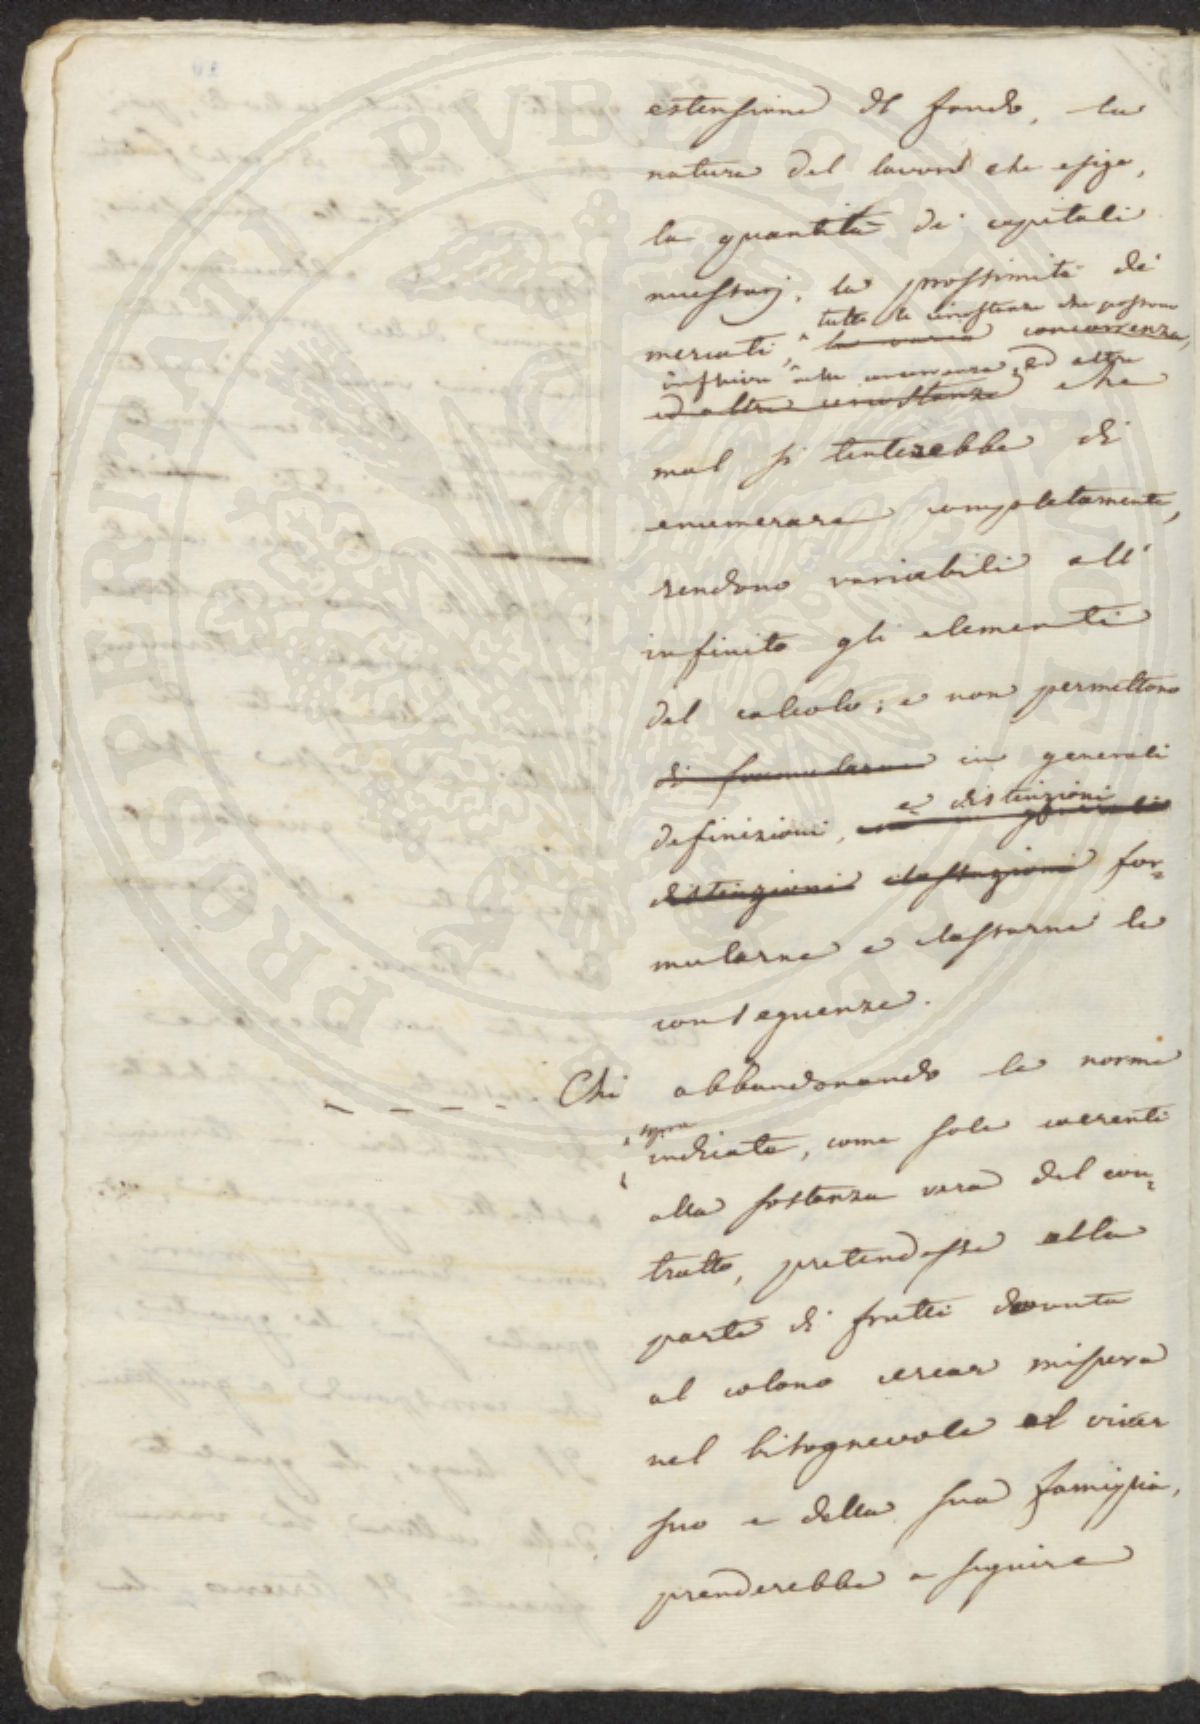 estensione del fondo, la
natura del lavoro che esige,
la quantità di capitali
necessarj, la prossimità dei
tutte le circostanze che possono
mercati, la varia concorrenza,
influire nella concorrenza, ed altre
ed altre circostanze che
mal si tenterebbe di
enumerare completamente,
rendono variabili all'
infinito gli elementi
del calcolo; e non permettono
di formularne in generali
e distinzioni
definizioni,
distinzioni classazioni for=
mularne e classarne le
conseguenze.
Chi abbandonando le norme
sopra
indicate, come sole coerenti
alla sostanza vera del con=
tratto, pretendesse alla
parte di frutti dovuta
al colono cercar misura
nel bisognevole al viver
suo e della sua famiglia,
prenderebbe a seguire
PROSPERITATI PUBLICAE AUGENDAE